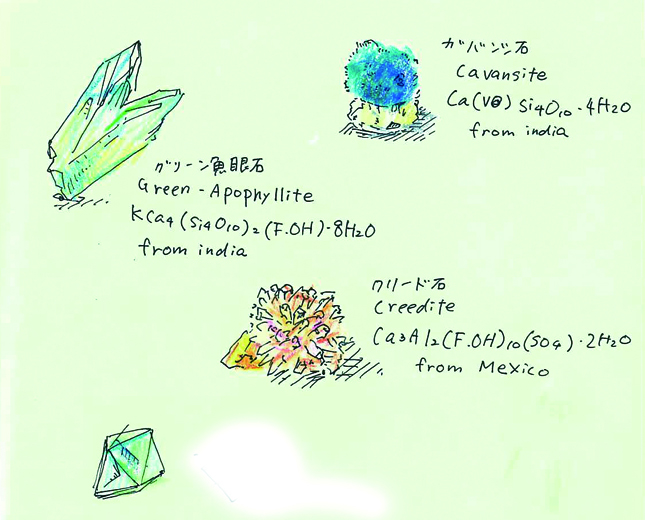 ガバンシ石
Cavansite
Ca(VO) Si4O10・4H2O
from india
グリーン魚眼石
Green-Apophyllite
KCa4(Si4O10)2(F.OH)・8H2O
from india
クリード石
Creedite
Ca3Al2(F.OH)10(SO4)・2H2O
from Mexico